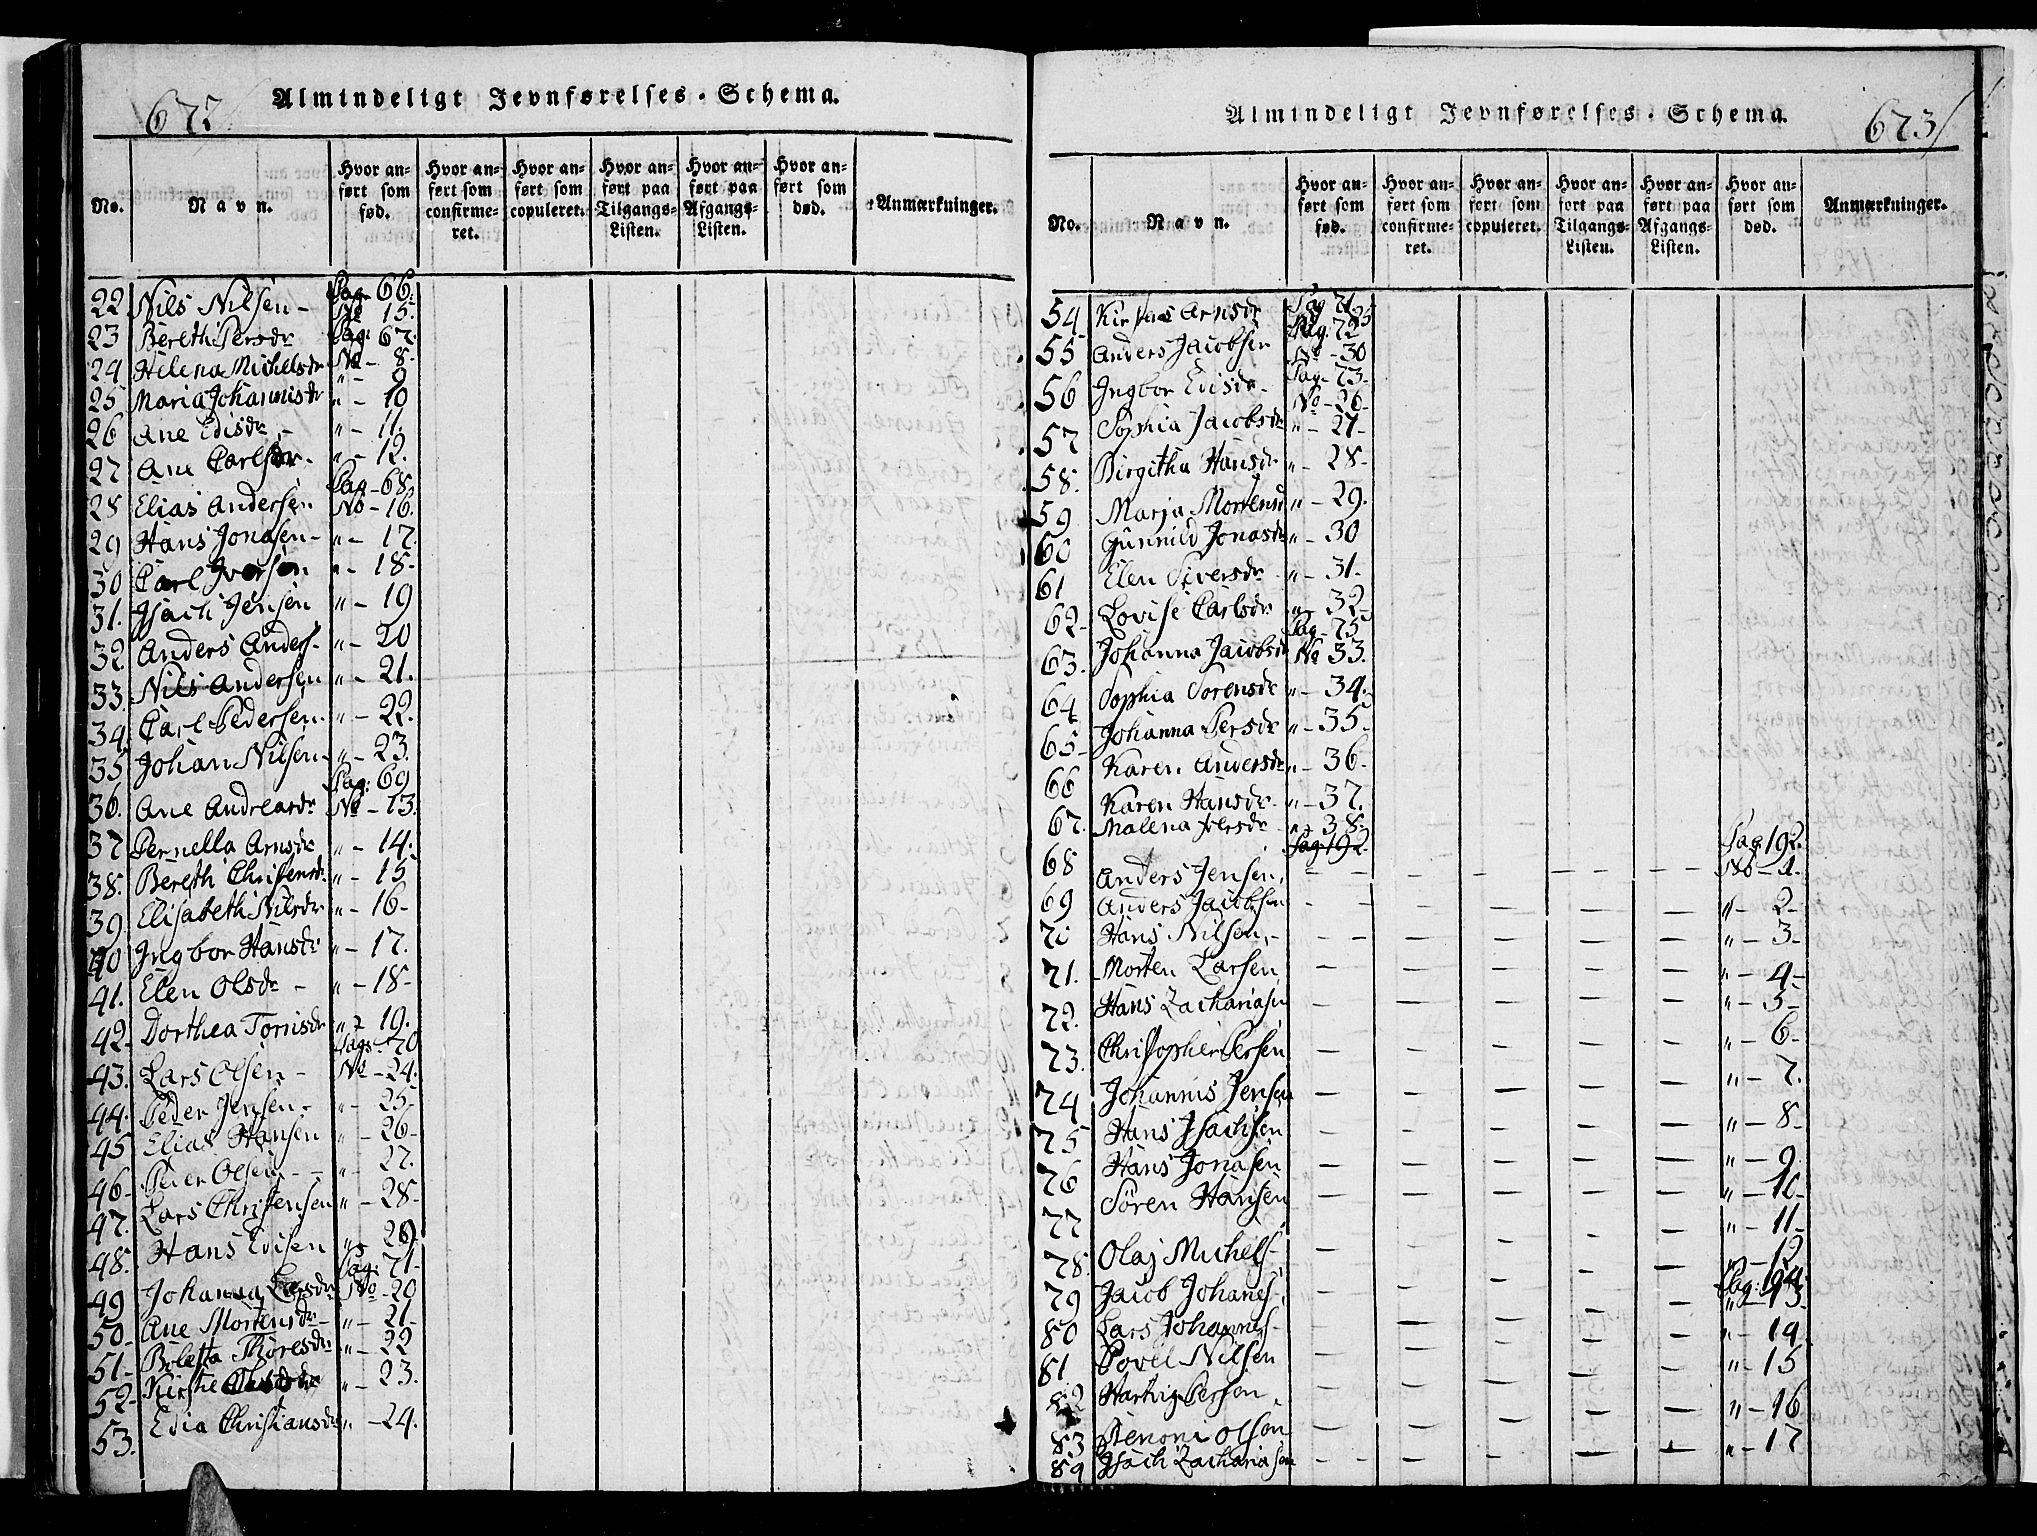 672
Almindeligt Jevnførelses-Schema.
No. Navn. Hvor anført som fød. Hvor anført som confirmeret. Hvor anført som copuleret. Hvor anført paa Tilgangs-Listen. Hvor anført paa Afgangs-Listen. Hvor anført som død. Anmærkninger.
Pag. 66.
22 Nils Nilsen - No 15.
Pag. 67.
23 Bereth Persdr No - 8.
24 Helena Michelsdr " - 9
25 Maria Johannisdr " - 10
26 Ane Edisdr " - 11.
27 Ane Carlsdr. " - 12.
Pag - 68.
28 Elias Andersen No - 16.
29 Hans Jonasen - " - 17.
30 Carl Iversen " - 18.
31. Isach Jensen " - 19
32 Anders Anders. " - 20
33. Nils Andersen " - 21.
34. Carl Pedersen. " - 22.
35 Johan Nilsen " - 23.
Pag. 69
36. Ane Andreasdr No - 13.
37 Pernella Arnsdr " - 14.
38. Bereth Christensdr. " - 15
39. Elisabeth Nilsdr " - 16-
40 Ingbor Hansdr " - 17.
41. Elen Olsdr - " - 18-
42- Dorthea Tornisdr " - 19.
Pag. 70
43. Lars Olsen - No - 24.
44. Peder Jensen - " - 25-
45 Elias Hansen " - 26-
46- Peder Olsen - " - 27.
47. Lars Christensen " - 28-
48. Hans Edisen " - 29.
Pag. 71-
49 Johanna Larsdr No - 20
50- Ane Mortensdr- " - 21-
51- Boletta Thoresdr " - 22
52- Kirstie " - 23.
53. Edia Christiansdr " - 24.
673/
Almindeligt Jevnførelses-Schema.
No. Navn. Hvor anført som fød. Hvor anført som confirmeret. Hvor anført som copuleret. Hvor anført paa Tilgangs-Listen. Hvor anført paa Afgangs-Listen. Hvor anført som død. Anmærkninger.
Pag. 71.
54 Arnsdr 25
Pag. 72
55 Anders Jacobsen No - 30
Pag. 73-
56 Ingbor Edisdr - No - 26-
57 Sophia Jacobsdr " - 27-
58. Birgitha Hansdr " - 28-
59. Marja Mortensd " - 29.
60 Gunnild Jonasdr " - 30
61 Elen Siversdr " - 31-
62- Lovise Carlsdr " - 32-
Pag - 75
63. Johanna Jacobsd No 33.
64 Sophia Sorensdr " - 34.
65- Johanna Persdr " - 35-
66 Karen Andersdr " - 36-
67. Karen Hansdr. " - 37.
Malena Persdr " - 38-
Pag. 192 Pag. 192.
68 Anders Jensen. - - - - - No - 1.
69 Anders Jacobsen - - - - - " - 2-
70 Hans Nilsen, - - - - - - " - 3-
71. Morten Larsen - - - - - " - 4-
72. Hans Zachariasen - - - - - " - 5-
73. Christopher Persen - - - - - " - 6-
74 Johannis Jensen - - - - - " - 7.
75 Hans Isachsen - - - - - " - 8-
76 Hans Jonasen - - - - - " - 9-
77 Sören Hansen - - - - - " - 10-
78. Olaj Michels. - - - - - " - 11-
79 Jacob Johanes. - - - - - " - 12
Pag. 194
80 Lars Johannes. - - - - - " - 13.
81 Povel Nilsen - - - - - " - 14
82 Hartvig Persen - - - - - " - 15
83 Benoni Olsen - - - - - " - 16
84 Isach Zachariasen - - - - - " - 17